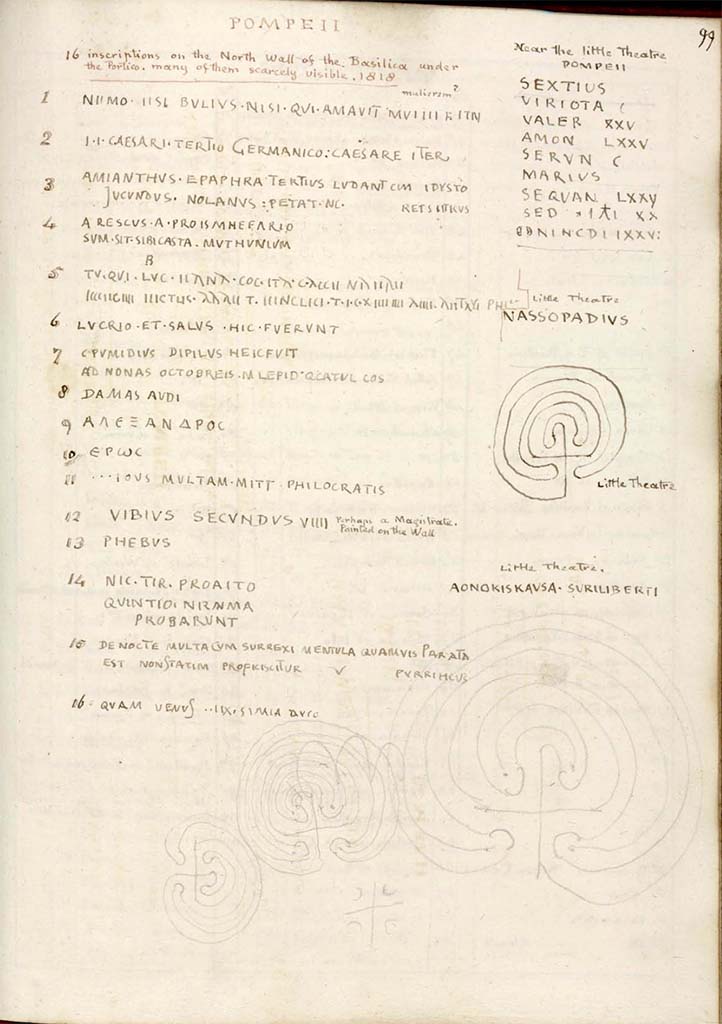 POMPEII
99
16 inscriptions on the North Wall of the Basilica under
the Portico. many of them scarcely visible. 1818
mulierem?
1 NIIMO · IISI BVLIVS · NISI · QVI · AMAVIT MVIIII
2 I · I · CAESARI · TERTIO GERMANICO : CAESARE ITER
3 AMIANTHVS · EPAPHRA TERTIUS LUDANT CUM IDYSTO
JUCUNDUS · NOLANUS : PETAT · NC.
4 A RESCUS · A · PROISMHEERRIO
SUM · SIT · SIBICASTA · MUTHUNIUM
B
5 TV · QVI · LVC ·
6 LVCRIO · ET · SALVS · HIC · FVERVNT
7 CPVMIDIVS DIPILVS HEICFVIT
AD NONAS OCTOBREIS · M LEPID · QCATVL COS
8 DAMAS AVDI
9 ΑΛΕΞΑΝΔΡΟC
10 ΕΡΩC
11 · · · IOUS MULTAM · MITT · PHILOCRATIS
12 VIBIUS SECVNDUS VIIII Perhaps a Magistrate.
Painted on the Wall
13 PHEBUS
14 NIC. TIR. PROAITO
QUINTIO
PROBARUNT
15 DENOCTE MULTACUM SURREXI MENTULA QUAMVIS PARATA
EST NONSTATIM PROFKISCITUR V PVRRIHCUS
16 QVAM VENUS · · IIX · SIMIA
Near the little Theatre
POMPEII
SEXTIUS
VIRIOTA (
VALER XXV
AMON LXXV
SERVN C
MARIUS
SEQUAN LXXV
SED XX
Little Theatre
NASSOPADIVS
Little Theatre
Little Theatre.
AONOKISKAVSA · SURILIBERTI